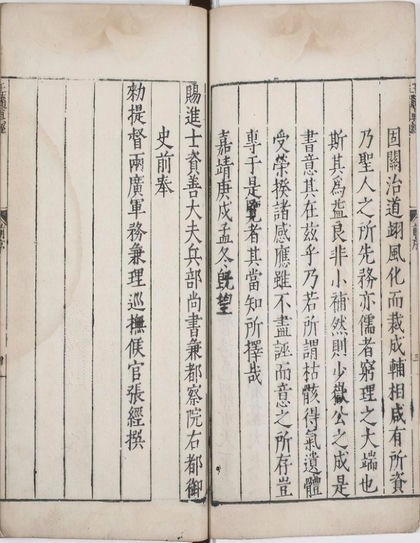 固關治道翊風化而裁成輔相咸有所資
乃聖人之所先務亦儒者窮理之大端也
斯其為益良非小補然則少嶽公之成是
書意其在茲乎乃若所謂枯骸得氣遺體
受榮揆諸感應雖不盡誣而意之所存豈
專于是覽者其當知所擇哉
嘉靖庚戌孟冬既望
賜進士資善大夫兵部尚書兼都察院右都御
史前奉
勑提督兩廣軍務兼理巡撫候官張經撰